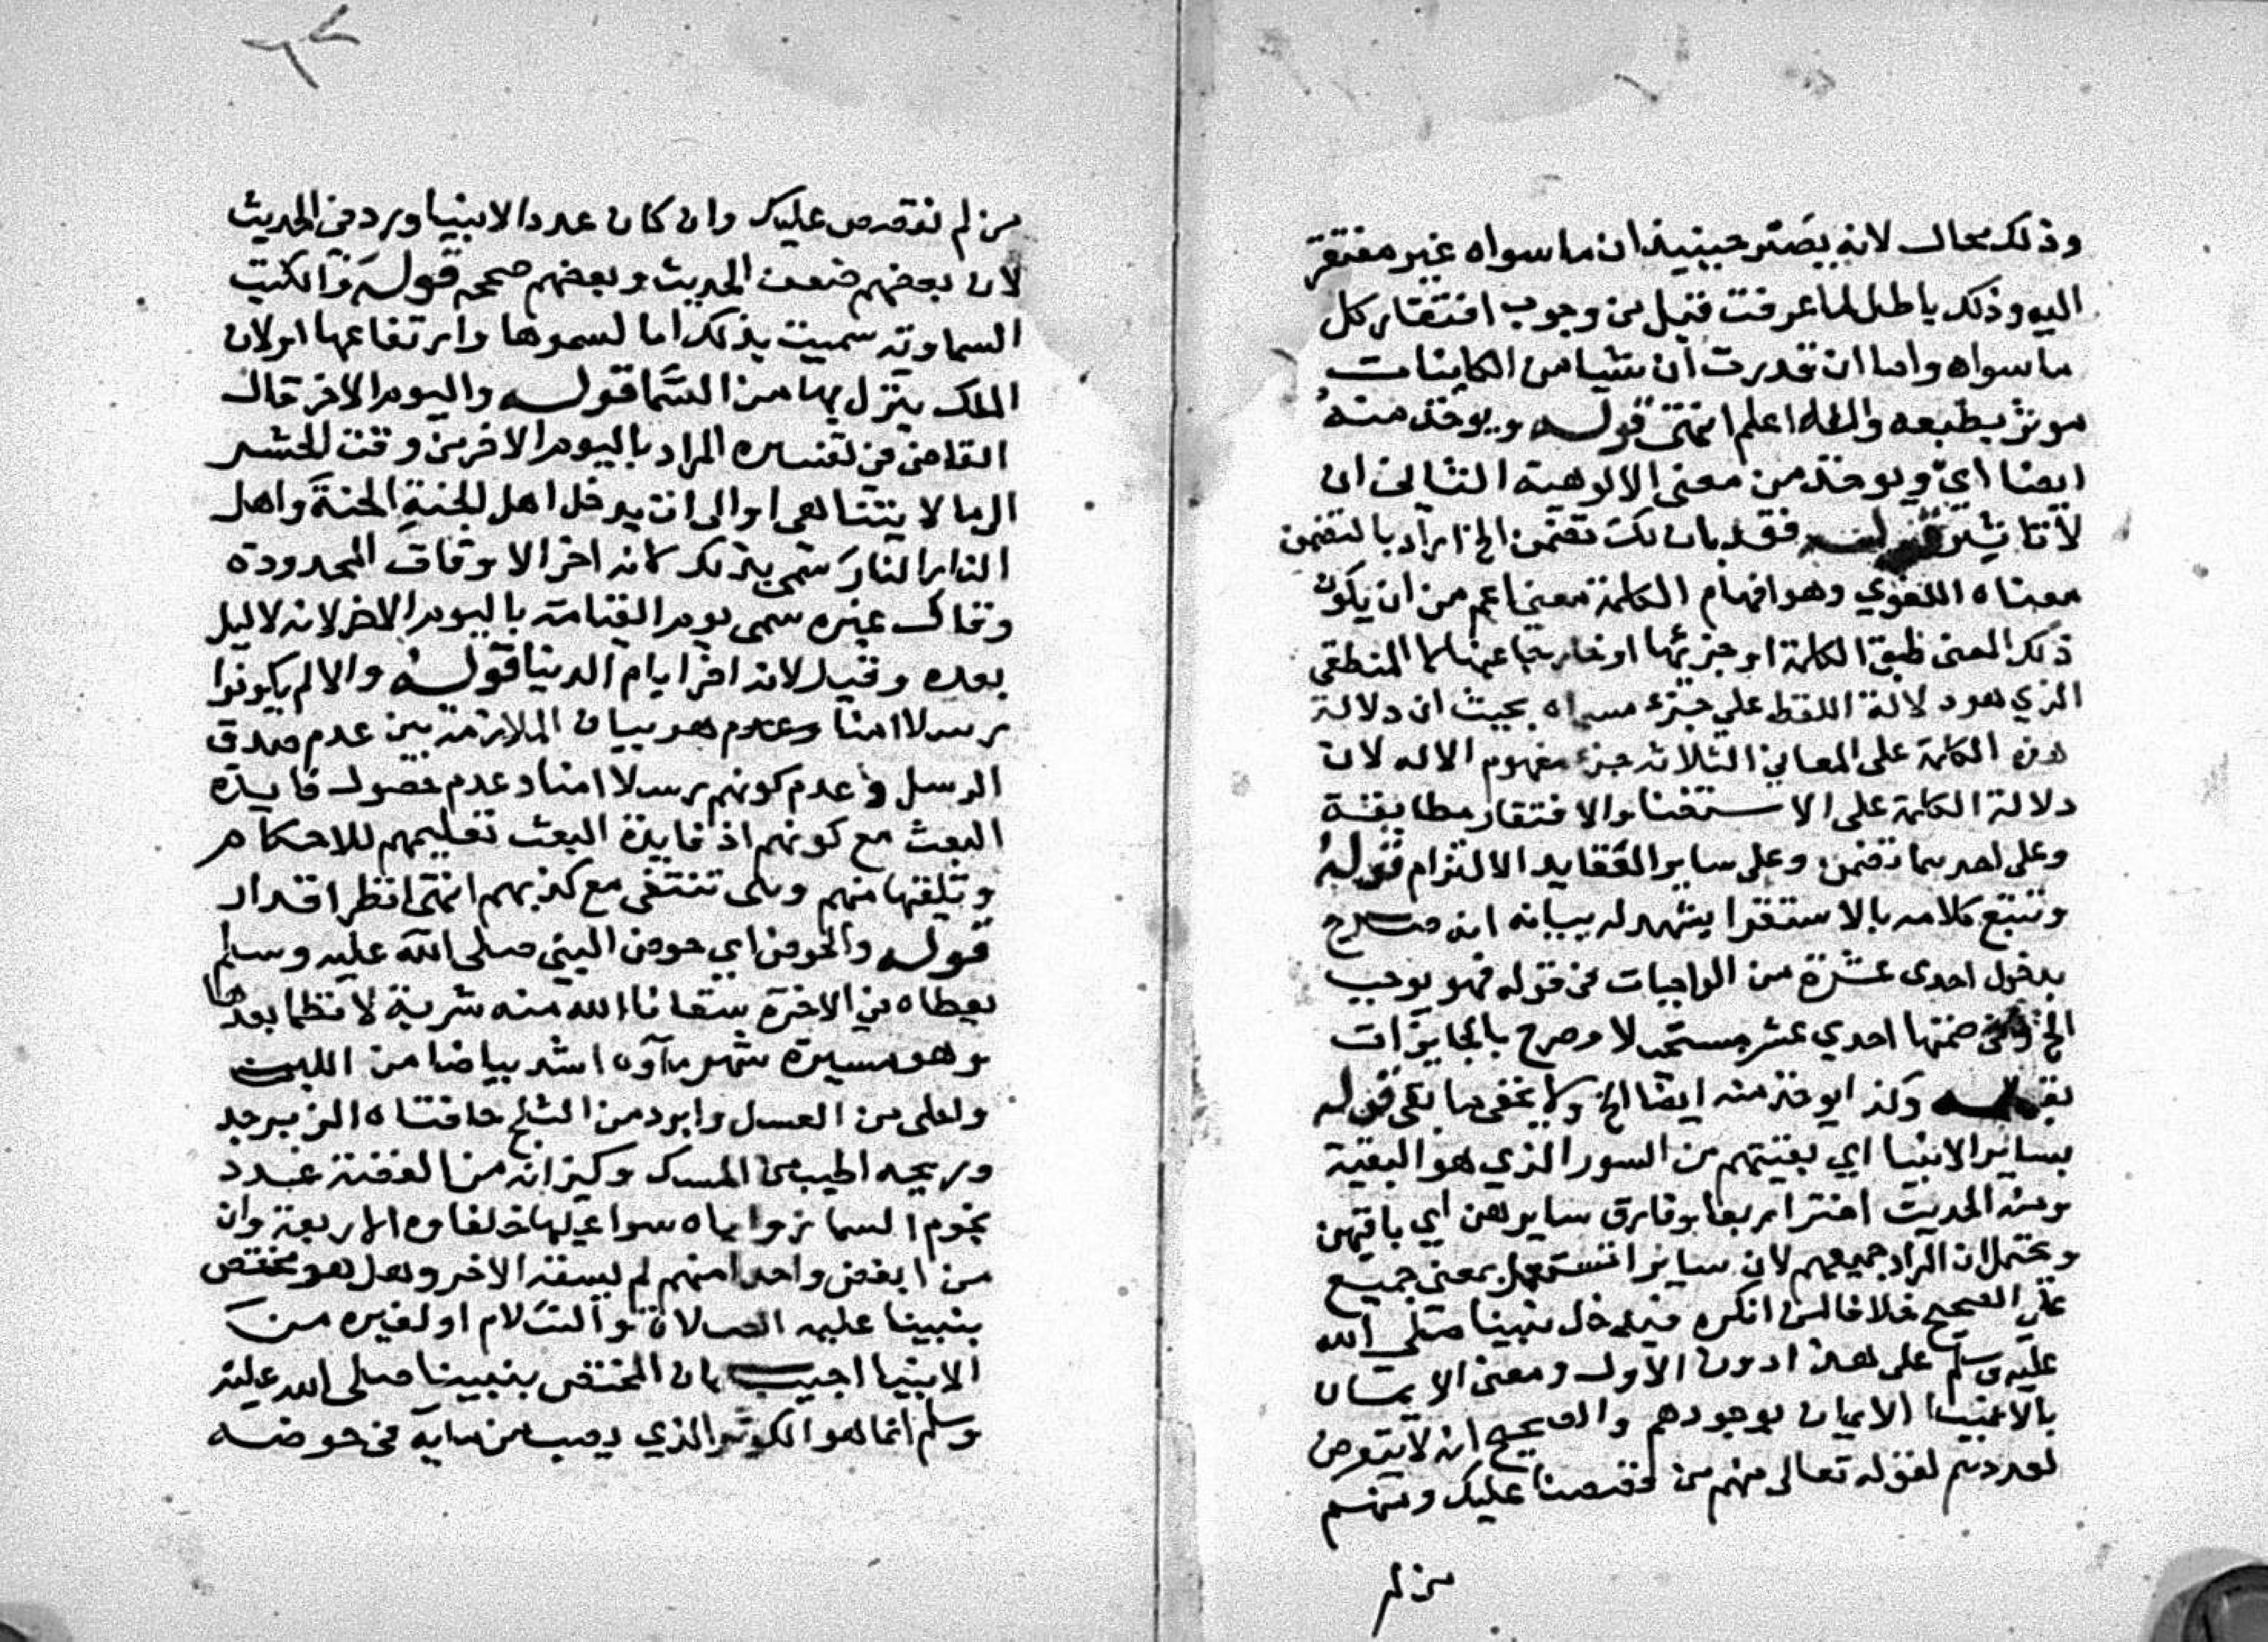 وذلك محال لانه يصير حينيذ ان ما سواه غير مفتقر
اليه وذلك باطل لما عرفت قبل من وجوب افتقار كل
ما سواه واما ان قدرت ان شيا من الكاينات
موثر بطبعه والله اعلم انتهى قوله ويوخذ منه
ايضا اي ويوخذ من معنى الالوهية الثاني ان
لا تاثير قوله فقد بان لك تضمن الخ اراد بالتضمن
معناه اللغوي وهو افهام الكلمة معنى اعم من ان يكون
ذلك المعنى طبق الكلمة او جزئها او خارجا عنها لا المنطقي
الذي هو دلالة اللفظ على جزء مسماه بحيث ان دلالة
هذه الكلمة على المعاني الثلاثه جزء مفهوم الاله لان
دلالة الكلمة على الاستغنا والافتقار مطابقة
وعلى احدهما تضمن وعلى ساير العقايد الالتزام قوله
وتتبع كلامه بالاستقرا يشهد له ببيانه انه صرح
بدخول احدى عشرة من الواجبات في قوله فهو يوجب
الخ وفي ضمنها احدي عشر مستحيلا وصرح بالجايزات
بقوله وكذا يوخذ منه ايضا الخ ولا يخفى ما بقى قوله
بساير الانبيا اي بقيتهم من السور الذي هو البقية
ومنه الحديث اختر اربعا وفارق سايرهن اي باقيهن
ويحتمل ان المراد جميعهم لان سايرا تستعمل بمعنى جميع
على الصحيح خلافا لمن انكره فيدخل نبينا صلى الله
عليه وسلم على هذا دون الاول ومعنى الايمان
بالانبيا الايمان بوجودهم والصحيح انه لا يتعرض
لعددهم لقوله تعالى منهم من قصصنا عليك ومنهم
من لم
من لم نقصص عليك وان كان عدد الانبيا ورد في الحديث
لان بعضهم ضعف الحديث وبعضهم صححه قوله والكتب
السماوية سميت بذلك اما لسموها وارتفاعها او لان
الملك ينزل بها من السما قوله واليوم الاخر قال
القاضي في تفسيره المراد باليوم الاخر من وقت الحشر
الى ما لا يتناهى او الى ان يدخل اهل الجنة الجنة واهل
النار النار سمى بذلك لانه اخر الاوقات المحدودة
وقال غيره سمى يوم القيامة باليوم الاخر لانه لا ليل
بعده وقيل لانه اخر ايام الدنيا قوله والا لم يكونوا
رسلا امنا وعدم هو بيان الملازمة بين عدم صدق
الرسل وعدم كونهم رسلا امنا وعدم حصول فايدة
البعث مع كونهم اذ فايدة البعث تعليمهم للاحكام
وتلقيها منهم وهي تنتفي مع كذبهم انتهى انظر اقدار
قوله والحوض اي حوض النبي صلى الله عليه وسلم
يعطاه في الاخرة سقانا الله منه شربة لا نظما بعدها
وهو مسيرة شهر ماؤه اشد بياضا من اللبن
واحلى من العسل وابرد من الثلج حافتاه الزبرجد
وريحه اطيب من المسك وكيزانه من الفضة عدد
نجوم السما زواياه سوا عليها خلفاوه الاربعة وان
من ابغض واحدا منهم لم يسقه الاخر وهل هو مختص
بنبينا عليه الصلاة والسلام او لغيره من
الانبيا اجيب بان المختص بنبينا صلى الله عليه
وسلم انما هو الكوثر الذي يصب من مايه في حوضه